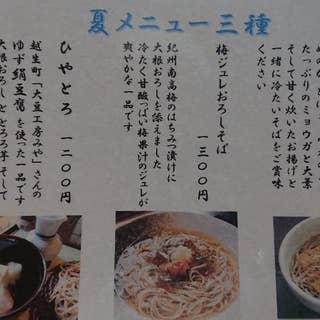 夏メニュー三種
たっぷりのミョウガと大葉
そして甘く炊いたお揚げと
一緒に冷たいそばをご賞味
ください
梅ジュレおろしそば
一三〇〇円
紀州南高梅のはちみつ漬けに
大根おろしを添えました
冷たく甘酸っぱい梅果汁のジュレが
爽やかな一品です
ひやとろ 一二〇〇円
越生町「大豆工房みや」さんの
ゆず絹豆腐を使った一品です
大根おろしととろろ芋そして